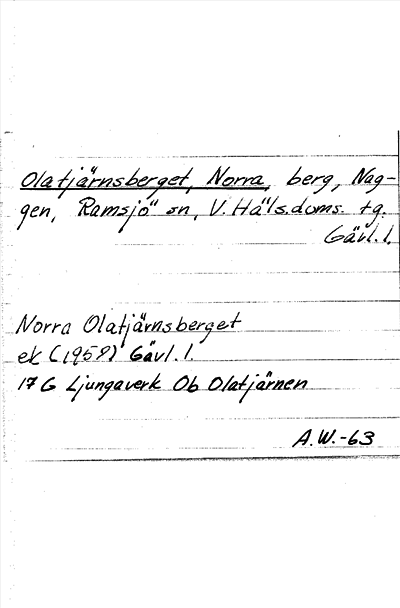 Olatjärnsberget, Norra, berg, Nag-
gen, Ramsjö sn, V. Häls.doms. tg.
Gävl. l.
Norra Olatjärnsberget
ek (1958) Gävl. l.
17 G Ljungaverk Ob Olatjärnen
A.W.-63